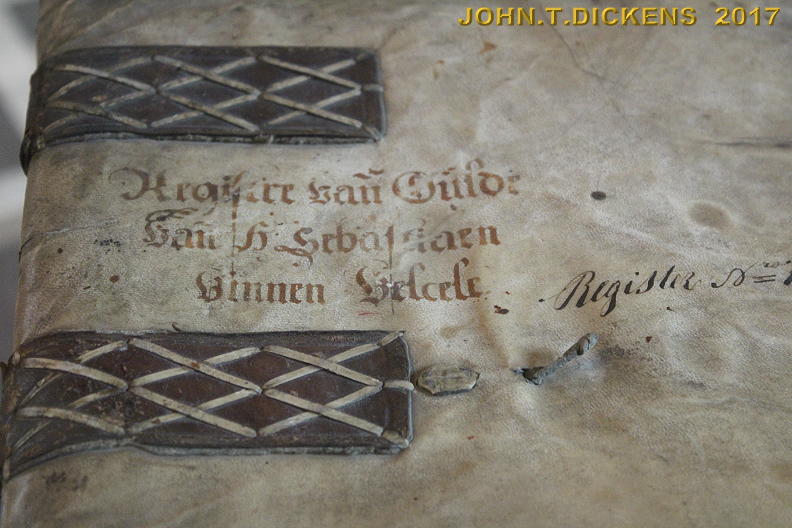 JOHN.T.DICKENS 2017
Registre van Gulde
van H Sebastiaen
binnen Velcele
Register Nro